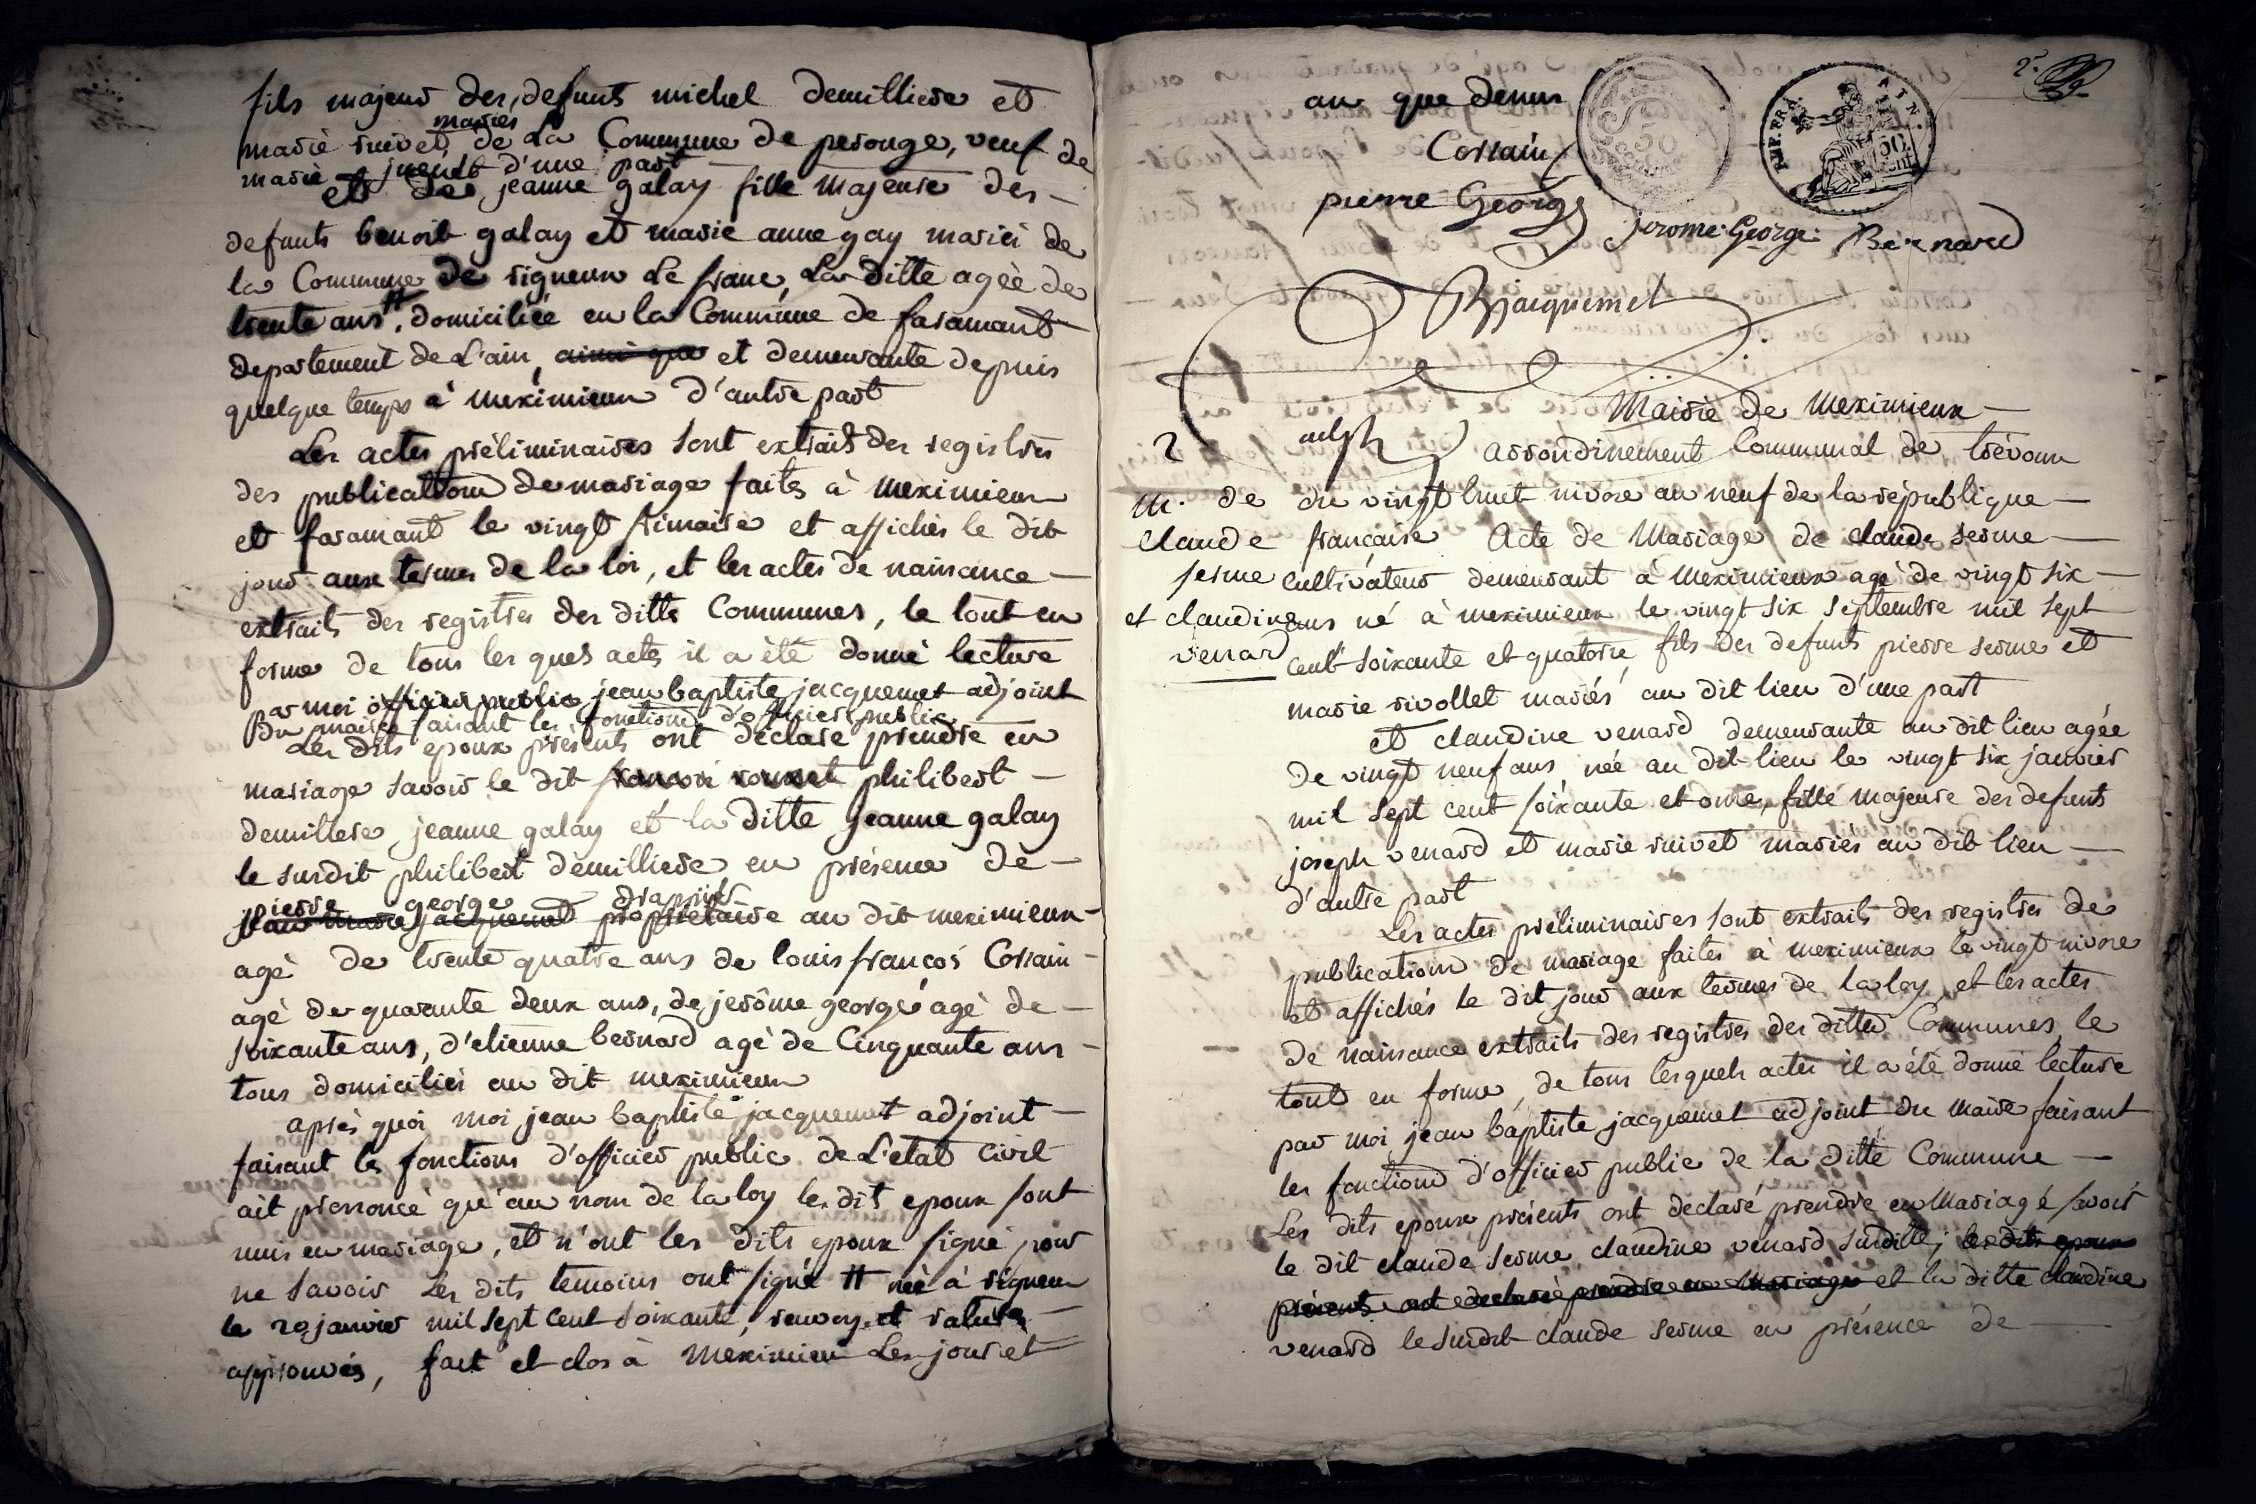 fils majeur des defunts michel demilliere et
marie ruivet mariés de la Commune de perouge, veuf de
marie d'une part
et de jeanne galay fille majeure des
defunts benoit galay et marie anne gay mariés de
la Commune de rigneux le franc, la ditte agèe de
trente ans #, domiciliée en la Commune de faramant
departement de L'ain, ainsi que et demeurante depuis
quelque temps à meximieux d'autre part
Les actes préliminaires sont extraits des registres
des publications de mariage faites à meximieux
et faramant le vingt frimaire et affichés le dit
jour aux termes de la loi, et les actes de naissance
extraits des registres des dittes Communes, le tout en
forme de tous les quels actes il a été donné lecture
par moi officier public jean baptiste jacquemet adjoint
du maire faisant les fonctions d'officier public
Les dits epoux présents ont déclaré prendre en
mariage savoir le dit philibert
demilliere jeanne galay et la ditte jeanne galay
le surdit philibert demilliere en présence de
pierre george drapier
jean marie jacquemet propriétaire au dit meximieux
agé de trente quatre ans de louis françois Corrain
agé de quarante deux ans, de jerôme george agé de
soixante ans, d'etienne bernard agé de Cinquante ans
tous domiciliés au dit meximieux
après quoi moi jean baptiste jacquemet adjoint
faisant les fonctions d'officier public de L'etat Civil
ait prononcé qu'au nom de la loy les dits epoux sont
unis en mariage, et n'ont les dits epoux signé pour
ne savoir Les dits temoins ont signé # née à rigneux
le 20 janvier mil sept cent soixante, renvoy et rature
approuvés, fait et clos à meximieux Les jour et
2.
an que dessus
50
REP. FRA. AIN.
50 cent.
Corrain
pierre George
jerome George Bernard
Bjacquemet
adjt
Mairie de meximieux
2
arrondissement Communal de trévoux
m. de
du vingt huit nivose an neuf de la république
Claude
française Acte de Mariage de claude serme
serme
cultivateur demeurant à meximieux agé de vingt six
et claudine
ans né à meximieux le vingt six septembre mil sept
venard
cent soixante et quatorze fils des defunts pierre serme et
marie rivollet mariés au dit lieu d'une part
et claudine venard demeurante au dit lieu agée
de vingt neuf ans née au dit lieu le vingt six janvier
mil sept cent soixante et onze, fille majeure des defunts
joseph venard et marie ruivet mariés au dit lieu
d'autre part
Les actes préliminaires sont extraits des registres de
publications de mariage faites à meximieux le vingt nivose
et affichés le dit jour aux termes de la loy, et les actes
de naissance extraits des registres des dittes Communes, le
tout en forme, de tous lesquels actes il a été donné lecture
par moi jean baptiste jacquemet adjoint du maire faisant
les fonctions d'officier public de la ditte Commune
Les dits epoux présents ont declaré prendre en Mariage savoir
le dit claude serme claudine venard surditte, les dits epoux
présents ont declaré prendre en Mariage et la ditte claudine
venard le surdit claude serme en présence de